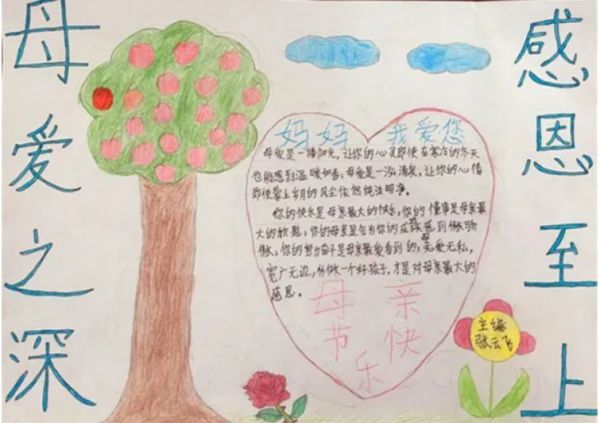 母爱之深
感恩至上
妈妈 我爱您
母爱是一缕阳光,让你的心灵即使在寒冷的冬天
也能感到温暖如春;母爱是一泓清泉,让你的心情
即使蒙上岁月的风尘依然纯洁明净。
你的快乐是母亲最大的快乐,你的懂事是母亲最
大的欣慰,你的母亲是会为你的成感到
你的努力奋斗是母亲最爱看到的,母爱无私,
宽广无边,你做一个好孩子,才是对母亲最大的
感恩。
母亲
节快
乐
主编
张云飞